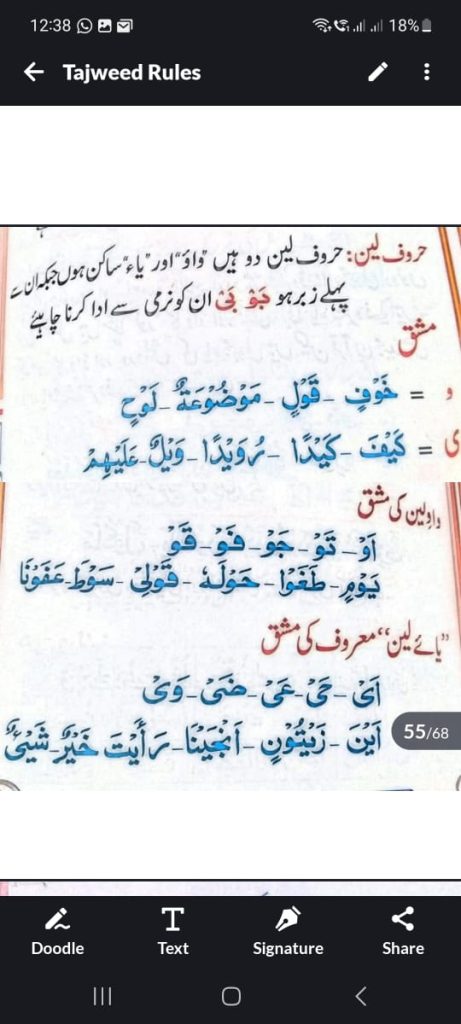 12:38
18%
Tajweed Rules
حروف لین: حروف لین دو ہیں "واؤ" اور "یاء" ساکن ہوں جبکہ ان سے
پہلے زبر ہو بَوْ بَیْ ان کو نرمی سے ادا کرنا چاہیئے
مشق
و = خَوْفٍ - قَوْلٍ - مَوْضُوْعَةٌ - لَوْحٍ
ی = كَيْفَ - كَيْدًا - رُوَيْدًا - وَيْلٌ - عَلَيْهِمْ
واؤ لین کی مشق
اَوْ - تَوْ - جَوْ - فَوْ - قَوْ
يَوْمٍ - طَغَوْا - حَوْلَهٗ - قَوْلِيْ - سَوْطَ - عَفَوْنَا
"یائے لین" معروف کی مشق
اَیْ - حَیْ - عَیْ - ضَیْ - وَیْ
اَيْنَ - زَيْتُوْنٍ - اَنْجَيْنَا - رَأَيْتَ خَيْرٌ - شَيْئٌ
55/68
Doodle
Text
Signature
Share